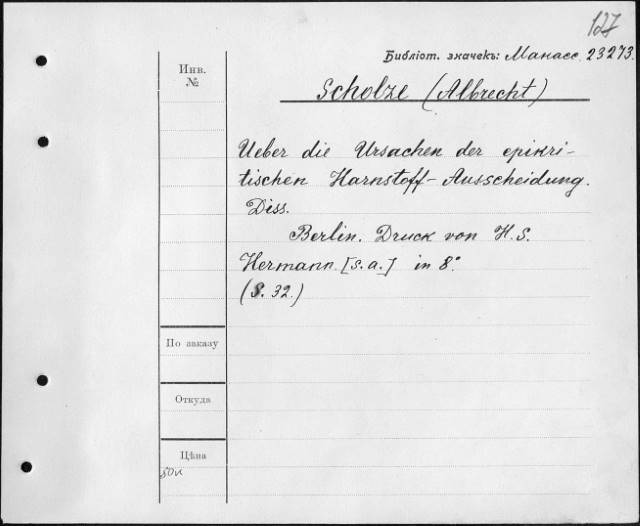 127
Библіот. значекъ: Манасс. 23273.
Инв.
№
Scholze (Albrecht)
Ueber die Ursachen der epikri-
tischen Harnstoff-Ausscheidung.
Diss.
Berlin. Druck von H. S.
Hermann. [s. a.] in 8°
(S. 32.)
По заказу
Откуда
Цѣна
50к